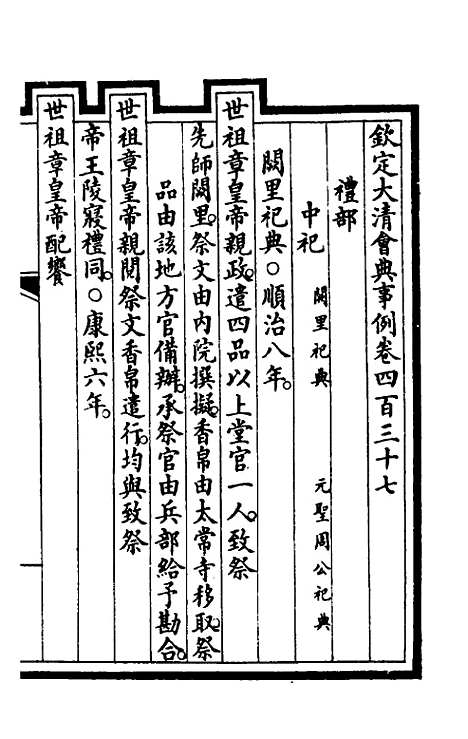 欽定大清會典事例卷四百三十七
禮部
中祀 闕里祀典 元聖周公祀典
闕里祀典○順治八年。
世祖章皇帝親政。遣四品以上堂官一人。致祭
先師闕里。祭文由內院撰擬。香帛由太常寺移取。祭
品由該地方官備辦。承祭官由兵部給予勘合。
世祖章皇帝親閱祭文香帛遣行。均與致祭
帝王陵寢禮同。○康熙六年。
世祖章皇帝配饗